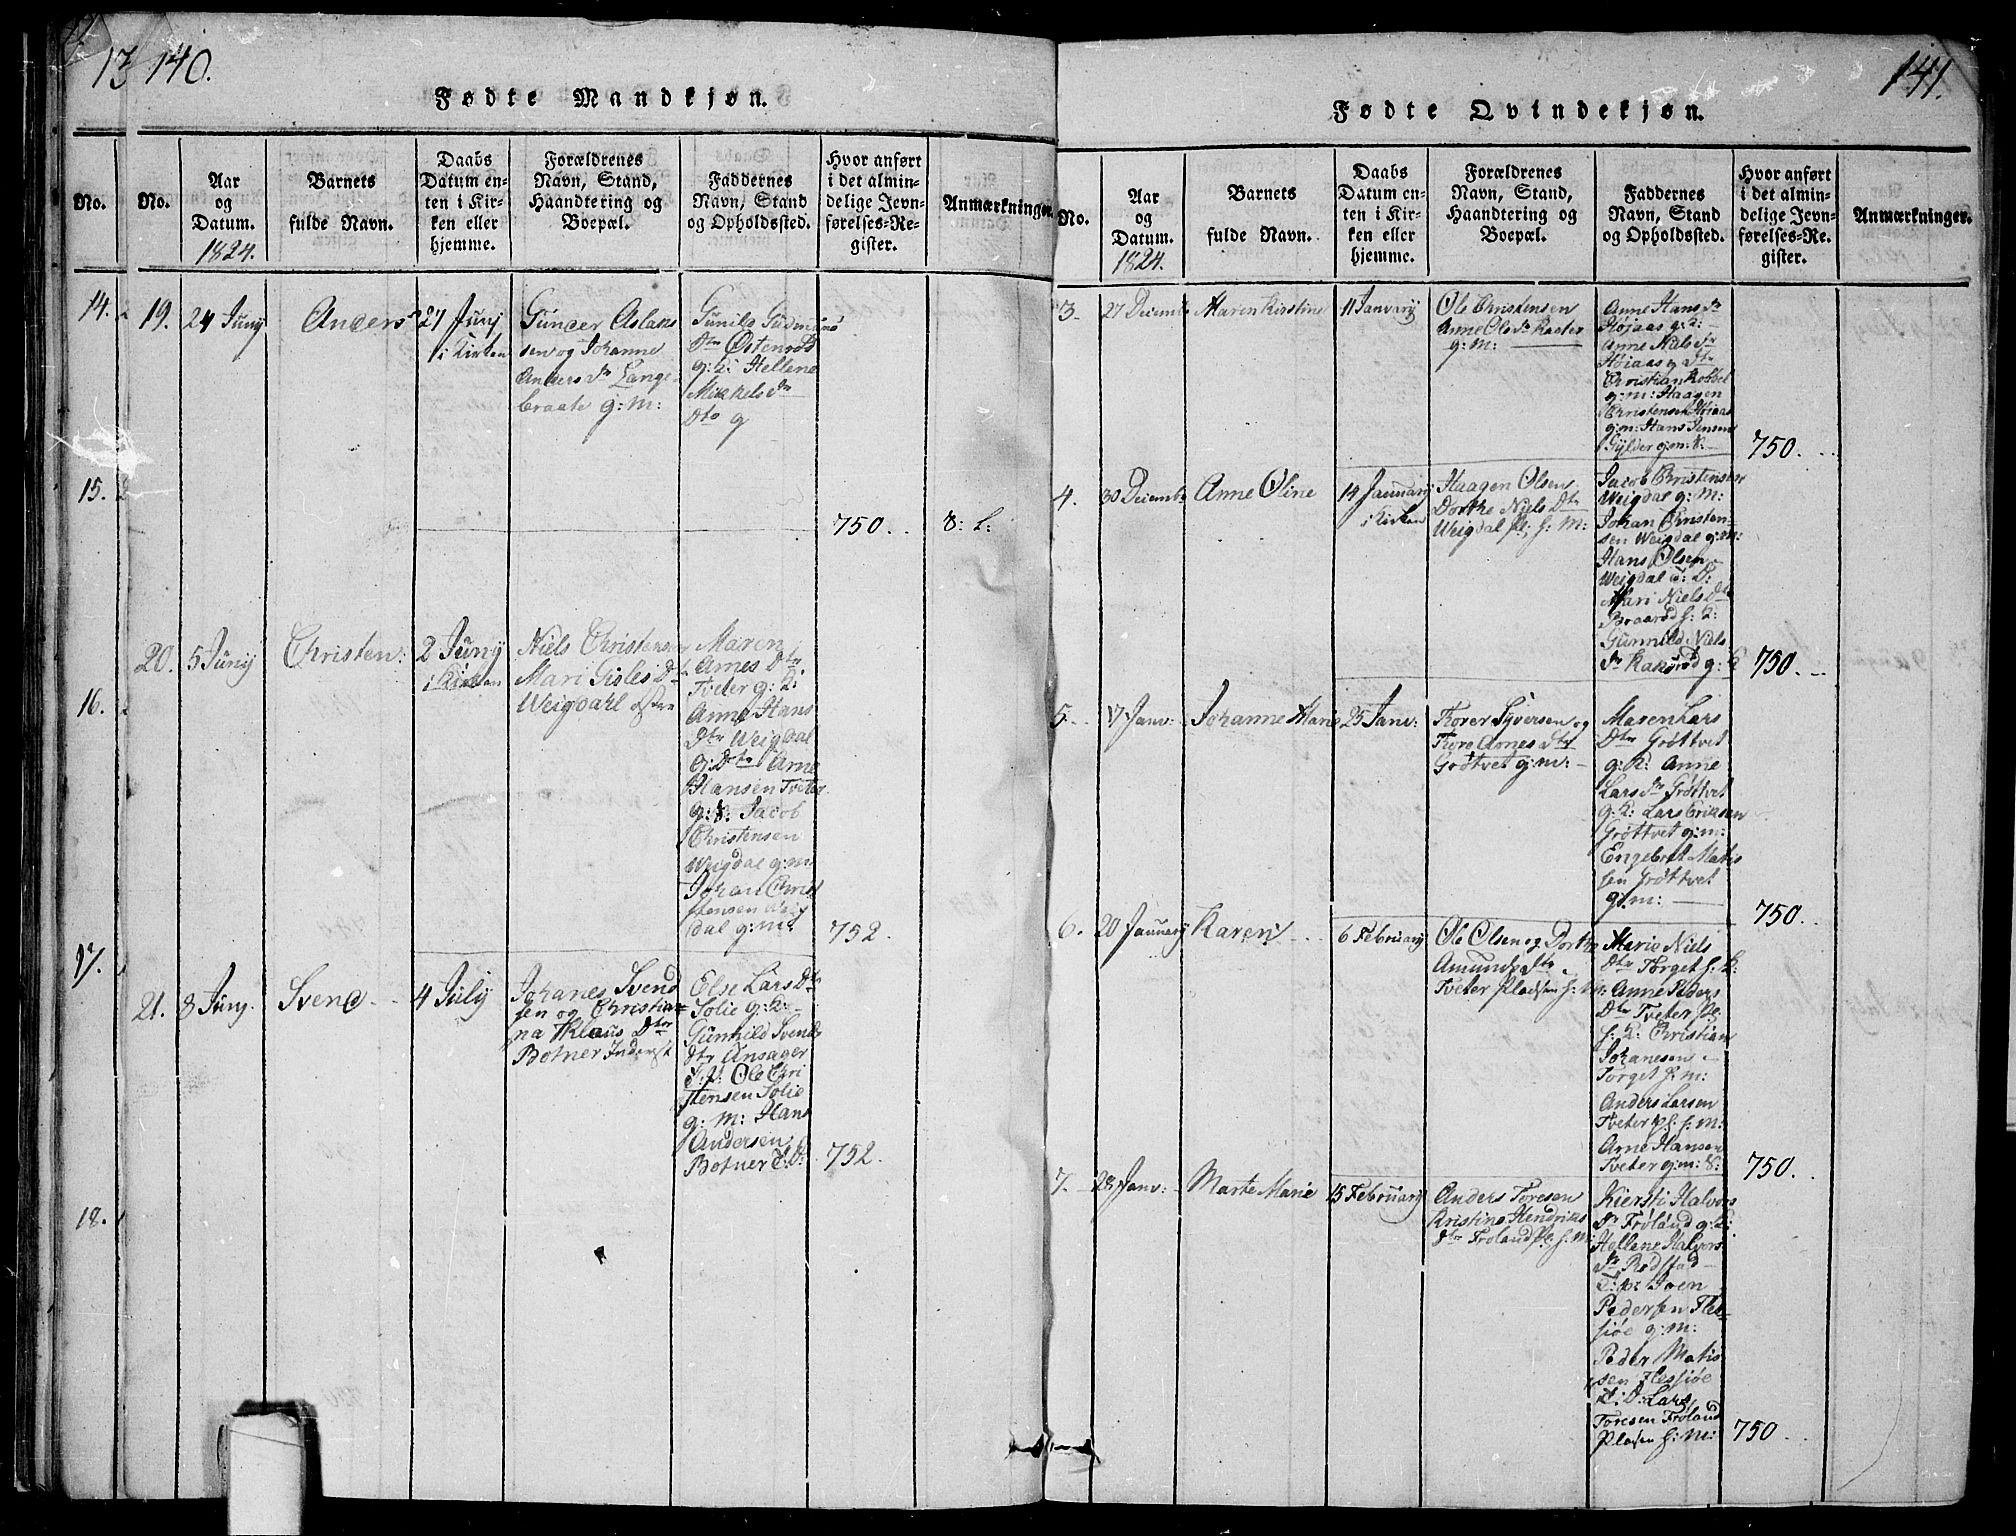 13 140.
Fødte Mandkjøn.
No.
14.
15.
16.
17.
18.
No.
Aar
og
Datum.
1824.
Barnets
fulde Navn.
Daabs
Datum en-
ten i Kir-
ken eller
hjemme.
Forældrenes
Navn, Stand,
Haandtering og
Boepæl.
Faddernes
Navn, Stand
og Opholdssted.
Hvor anført
i det almin-
delige Jevn-
førelses-Re-
gister.
Anmærkninger.
19.
24 Juny
Anders
27 Juny
i Kirken
Gunder Aslak
sen og Johanne
Anders Dr Lange
braate g: M:
Gunild Gudmund
Dtr Østenrød
g: K: Hellene
Mikkels Dr
Dto g
750.
8: L:
20.
5 Juny
Christen:
2 Juny
i Kirken
Niels Christensen
Mari Gisles D
Weigdahl
Maren
Arnes Dtr
Tveter g: K:
Anne Hans
Dtr Weigdal
g: Dto Arne
Hansen Tveter
g: K: Jacob
Christensen
Weigdal g: m
Johan Chri
stensen Weig
dal g: m:
752
21.
8 Juny.
Svend
4 July
Johanes Svend
sen og Christia
na Klaus Dtr
Botner Inderst
Else Lars Dtr
Solie g: K:
Gunhild Svends
dtr Ansager
Ole Chri
stensen Solie
g: M: Hans
Andersen
Botner T: D:
752.
141.
Fødte Qvindekjøn.
No.
Aar
og
Datum.
1824.
Barnets
fulde Navn.
Daabs
Datum en-
ten i Kir-
ken eller
hjemme.
Forældrenes
Navn, Stand,
Haandtering og
Boepæl.
Faddernes
Navn, Stand
og Opholdssted.
Hvor anført
i det almin-
delige Jevn-
førelses-Re-
gister.
Anmærkninger.
3.
27 Decembr
Maren Kirstine
11 January
Ole Christensen
Anne Ols Dr Raeter
g: M:
Anne Hans Dr
Højaas g: K:
Anne Niels Dr
Højaas g Dto
Christian Kobbel
g: m: Haagen
Christensen Højaas
g: m: Hans Jensen
Gylder g: m: K:
750.
4.
30 Decembr
Anne Oline
14 January
i Kirken
Haagen Olsen
Dorthe Niels Dtr
Weigdal pl: h: M:
Jacob Christensen
Weigdal g: M:
Johan Christen-
sen Weigdal g: m:
Hans Olsen
Weigdal u: D:
Mari Niels Dtr
Braarød h: K:
Gunnild Niels
Dr Kakurød g: K
750.
5.
17 Janv:
Johanne Marie
25 Janv:
Thorer Syversen og
Thore Arnes Dtr
Grøtvet g: m:
Maren Lars
Dtr Grøttvet
g: K: Anne
Lars Dr Grøttvet
g: K: Lars Eriksen
Grøttvet g: m:
Engebret Matis
sen Grøttvet
g: m:
750.
6.
20 January
Karen
6 February
Ole Olsen og Dorthe
Amunds Dtr
Tveter Pladsen h: M:
Marie Niels
Dtr Torget h: K:
Anne Peders
Dtr Tveter Pl.
h: K: Christian
Johanesen
Torget h: m:
Anders Larsen
Tveter pl: h: m:
Arne Hansen
Tveter g: m: K:
750.
7.
28 Janv:
Marte Marie
15 February
Anders Toresen
Kristine Hendriks
Dtr Frøland Pl: h: M:
Kiersti Halvors
Dr Frøland g: K:
Hellene Halvors
Dr Rødstad
Joen
Pedersen Fles-
siøe g: M:
Peder Matis
sen Flessiøe
u: D: Lars
Toresen Frøland
Pladsen h: m:
750.